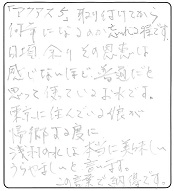 「アクアス」を取り付けてから
何年になるのか忘れる程です。
日頃余りその恩恵は
感じないほど普通だと
思って使っているお水です。
東京に住んでいる娘が
帰郷する度に
浅利の水は本当に美味しい
うらやましいと言います。
この言葉で納得です。